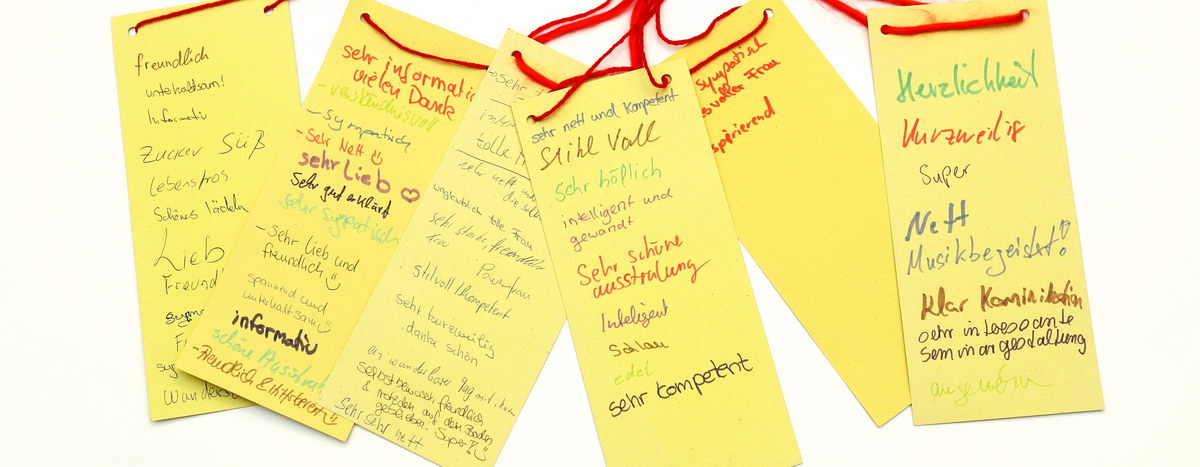 freundlich
unterhaltsam!
Informativ
Zucker süß
Lebensfros
Schönes lächeln
Lieb
Freund
sehr informati
vielen Danke
- verständnisvoll
- Sympathisch
- Sehr Nett
sehr Lieb
Sehr gut erklärt
sehr sympatisch
- Sehr lieb und
freundlich
spannend und
unterhaltsam
informativ
schöne Ausstrah
tolle
sehr nett und
unglaublich tolle Frau
sehr starke, freundliche
Frau
Powerfrau
stilvoll, kompetent
sehr kurzweilig
danke schön
ein wunderbarer Tag mit ihnen
Selbstbewusst, freundlich
& trotzdem auf dem Boden
geblieben. Super
Sehr sehr nett
sehr nett und kompetent
Stihl Voll
Sehr höflich
intelligent und
gewandt
Sehr schöne
ausstralung
Inteligent
Schlau
edel
sehr kompetent
sympatisch
svoller Frau
spirierend
Herzlichkeit
Kurzweilig
Super
Nett
Musikbegeistert!
klar Kommunikation
sehr interessante
Seminargestaltung
angenehm